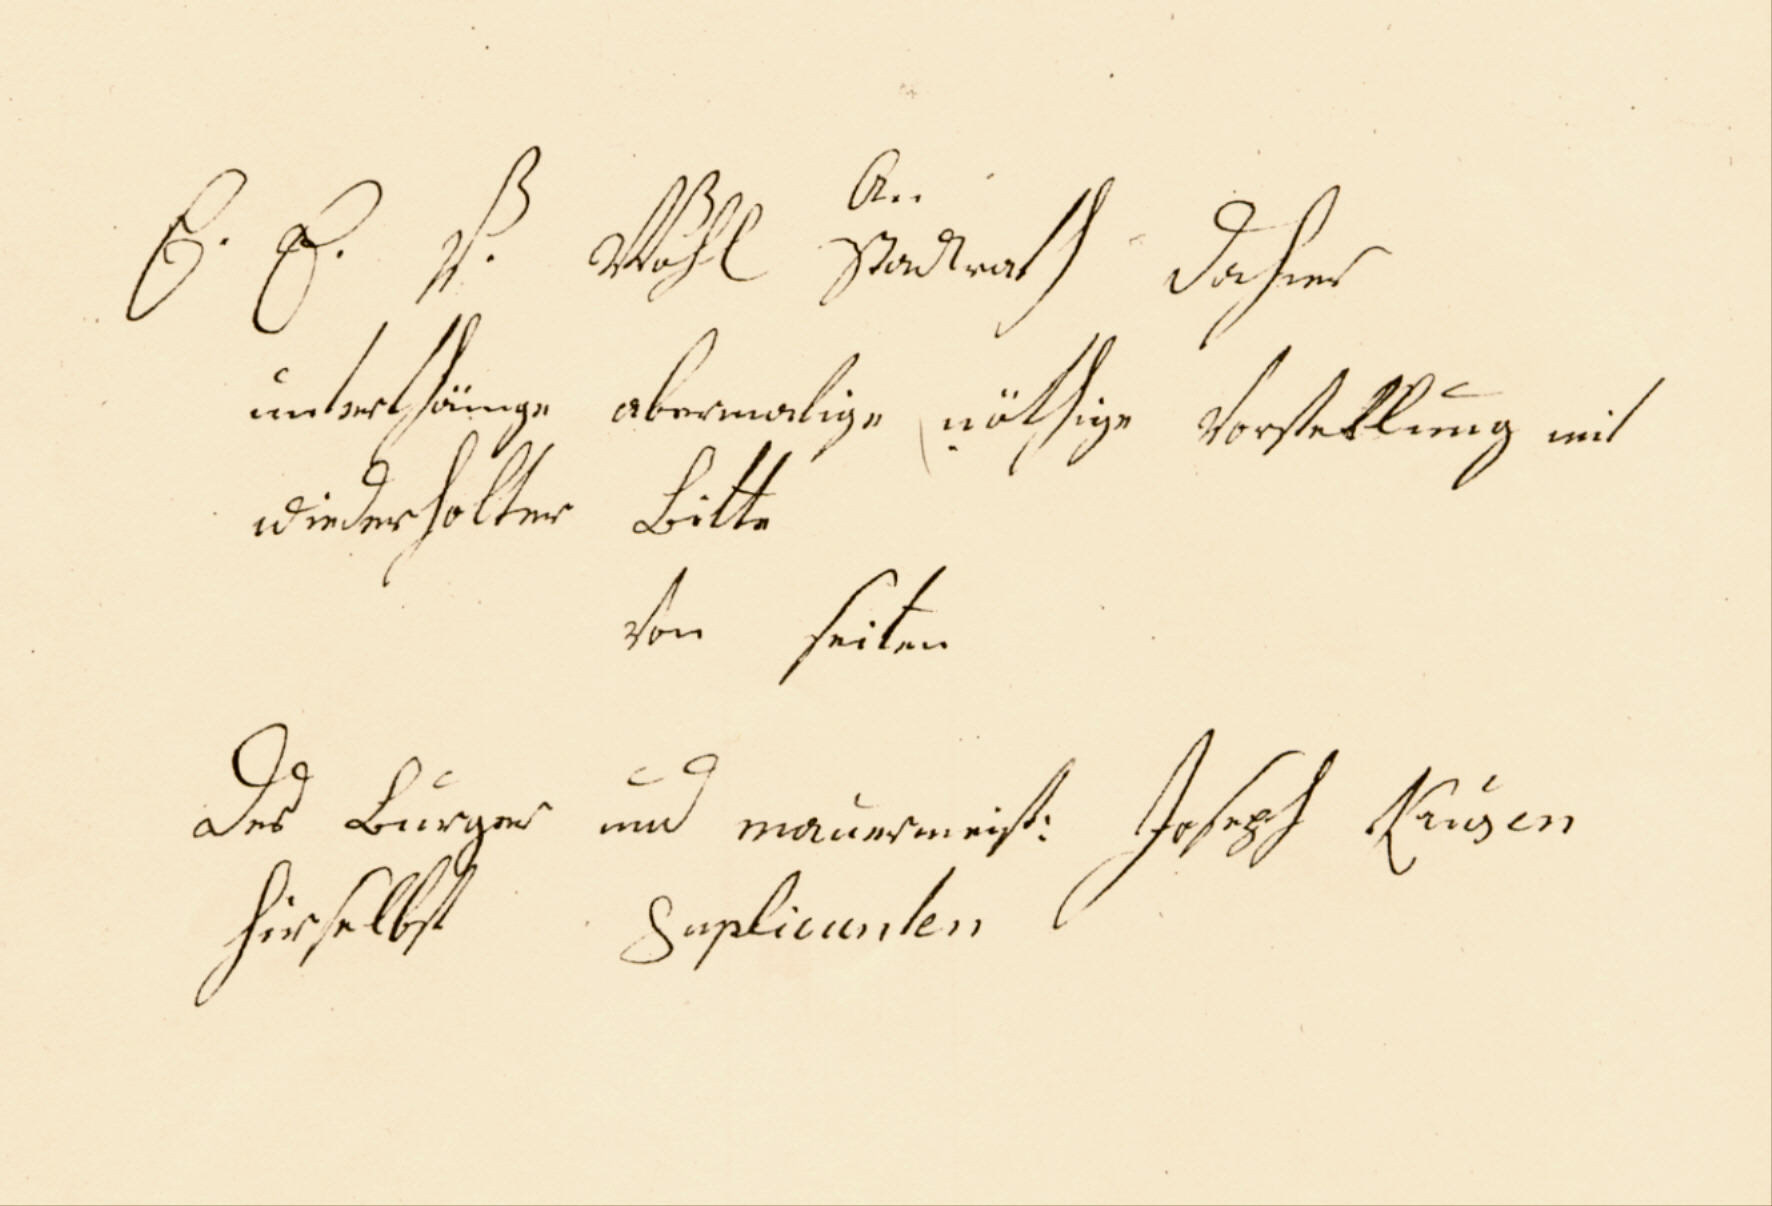 An
E. E. V. Wohl Stadtrath dahier
unterthänige abermalige nöthige Vorstellung mit
wiederholter Bitte
Von seiten
Des Burger und mauermeist: Joseph Kausen
hirselbst Suplicanten